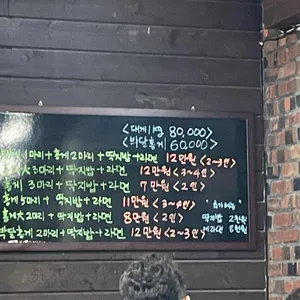 <대게1kg 80,000>
<박달홍게 60,000>
1마리+홍게2마리+딱지밥+라면 12만원 <2~3인>
大3마리+딱지밥+라면 12만원 <3~4인>
홍게 3마리+딱지밥+라면 7만원 <2인>
홍게 5마리 + 딱지밥+라면 11만원 <3~4인>
홍게大2마리 + 딱지밥+라면 8만원 <2인> 딱지밥 2천원
박달홍게 2마리+딱지밥+라면 12만원 <2~3인> 게라면 8천원